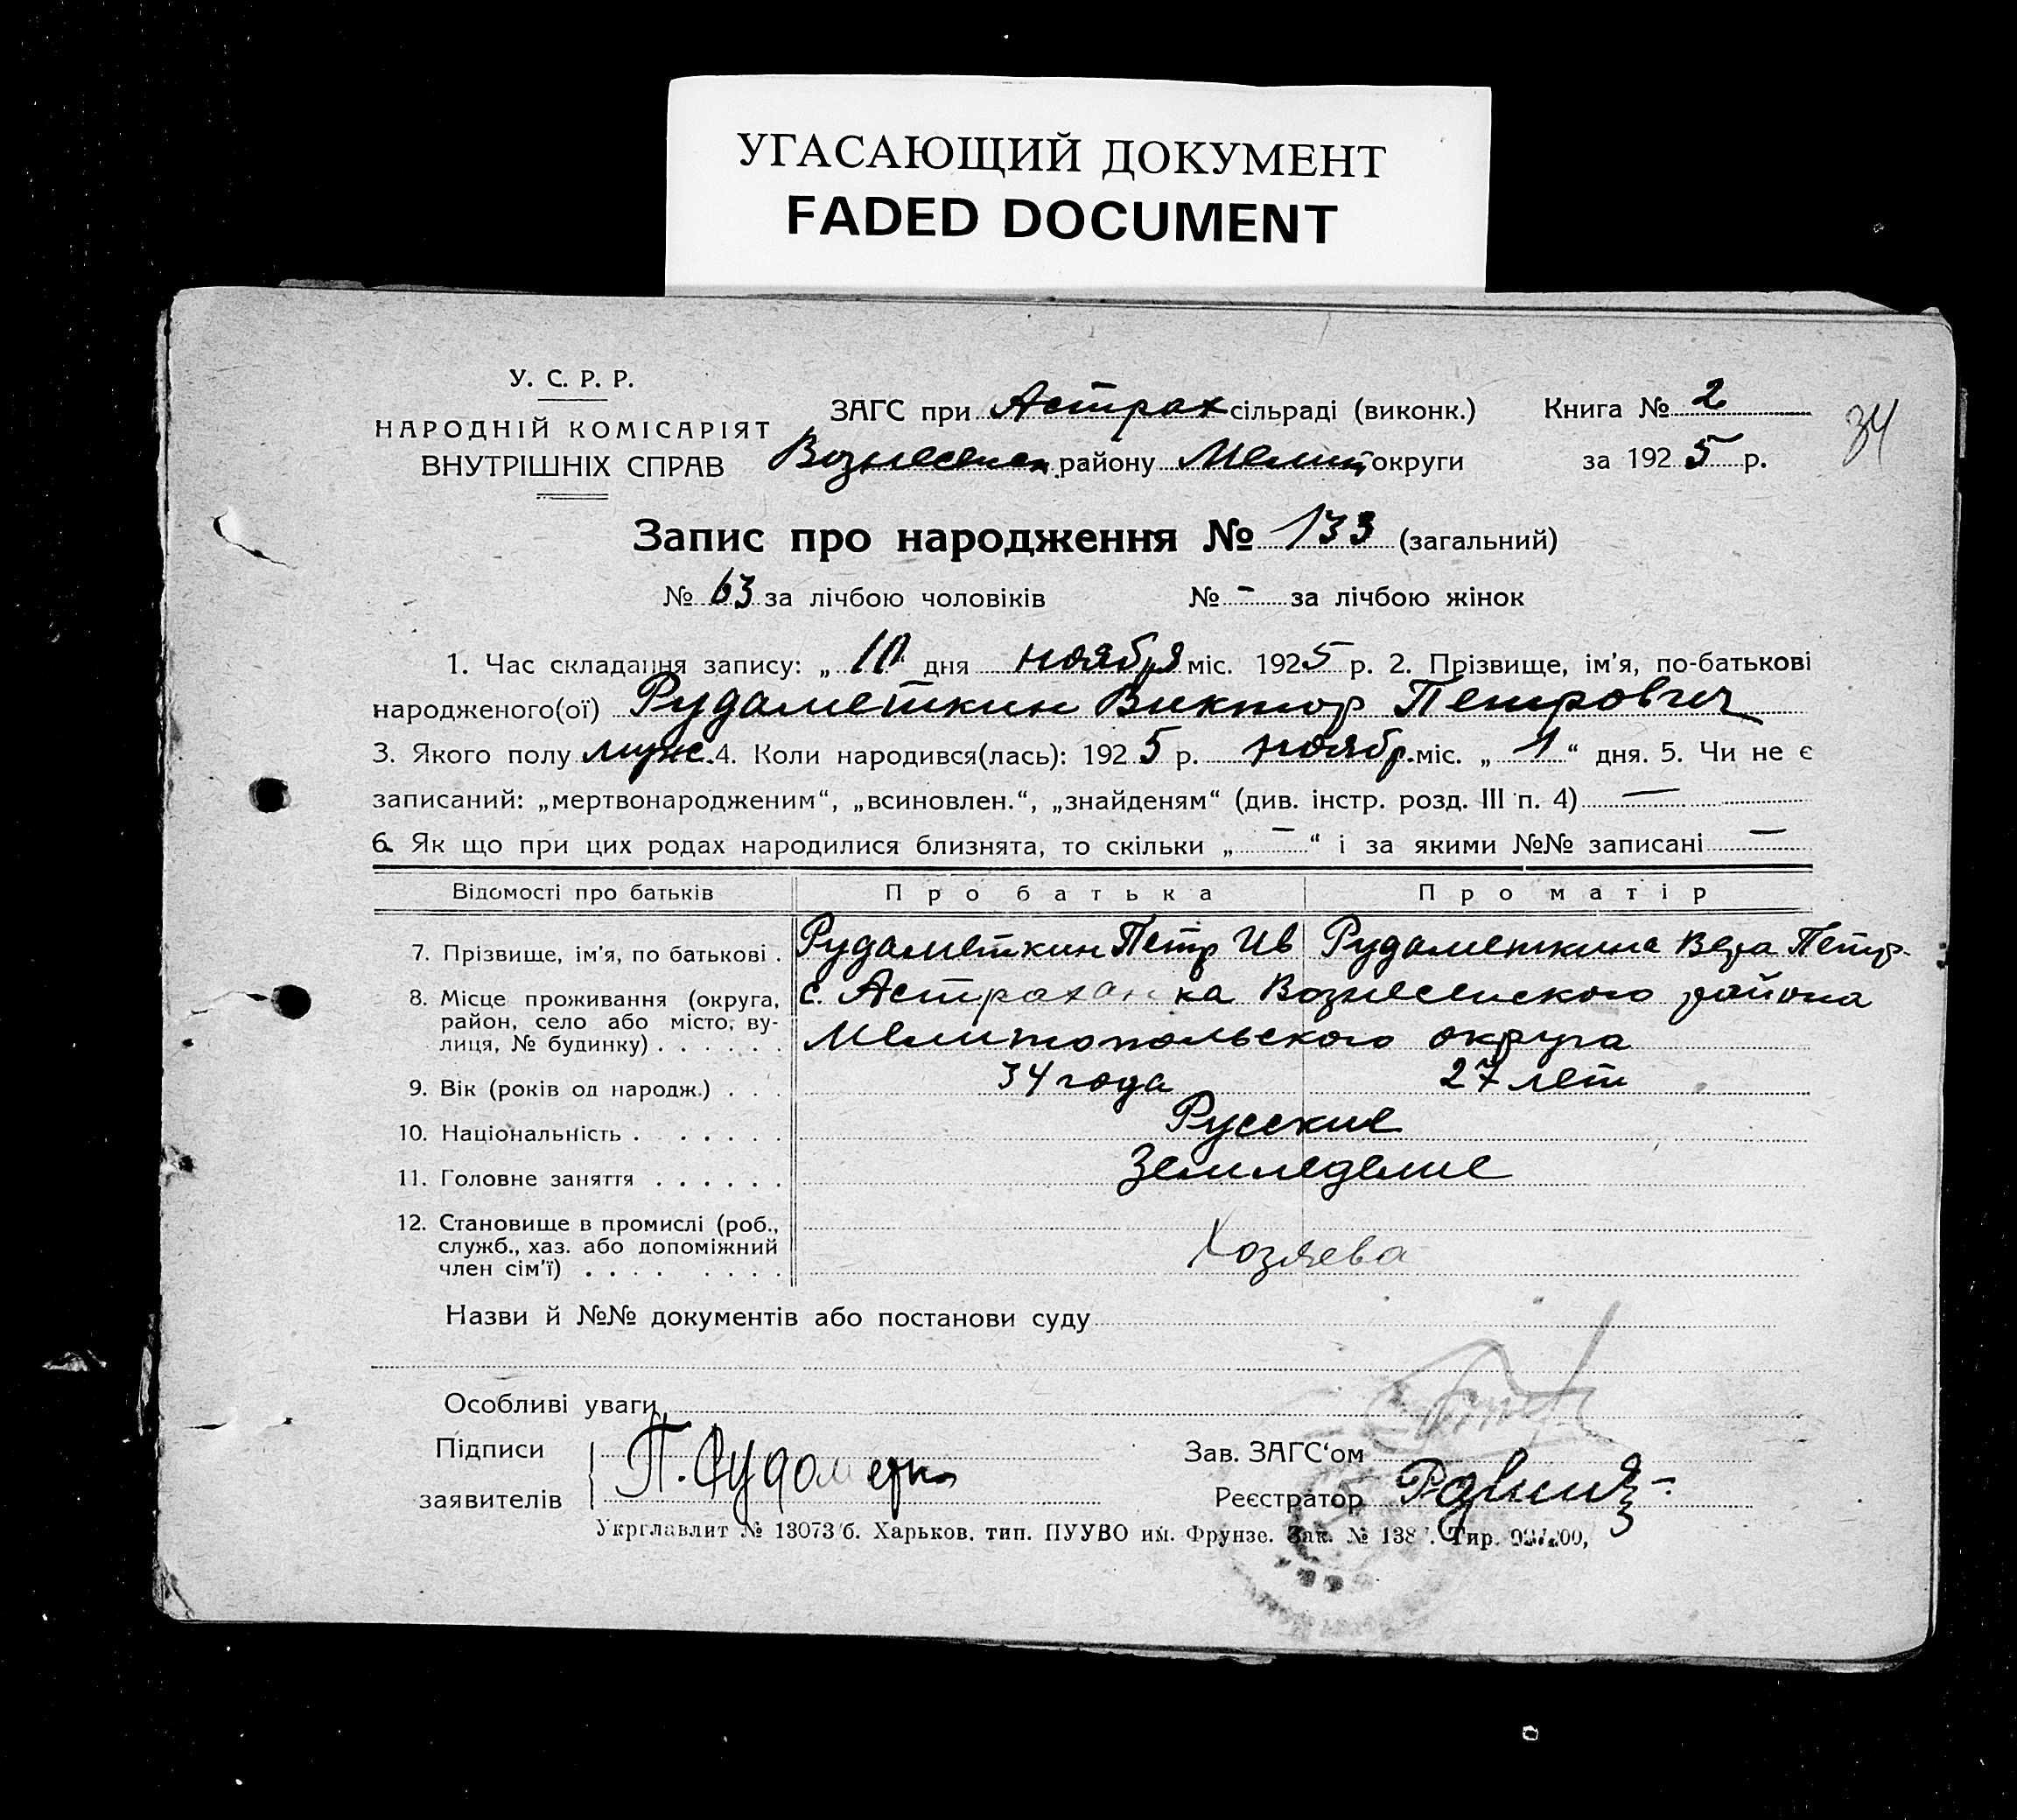 УГАСАЮЩИЙ ДОКУМЕНТ
FADED DOCUMENT
У. С. Р. Р.
НАРОДНІЙ КОМІСАРІЯТ
ВНУТРІШНІХ СПРАВ
ЗАГС при Астрах сільраді (виконк.)
Вознесенск. району Мелит округи
Книга № 2
за 1925 р.
34
Запис про народження № 133 (загальний)
№ 63 за лічбою чоловіків № - за лічбою жінок
1. Час складання запису: „ 10 дня ноября міс. 1925 р. 2. Прізвище, ім'я, по-батькові
народженого(ої) Рудаметкин Виктор Петрович
3. Якого полу муж. 4. Коли народився(лась): 1925 р. ноябр. міс. „ 1 “ дня. 5. Чи не є
записаний: „мертвонародженим“, „всиновлен.“, „знайденям“ (див. інстр. розд. III п. 4) —
6. Як що при цих родах народилися близнята, то скільки „ — “ і за якими №№ записані —
Відомості про батьків Про батька Про матір
7. Прізвище, ім'я, по батькові . Рудаметкин Петр Ив Рудаметкина Вера Петр.
8. Місце проживання (округа, с. Астраханка Вознесенского района
район, село або місто, ву-
лиця, № будинку) . . . . . . Мелитопольского округа
9. Вік (років од народж.) . . . 34 года 27 лет
10. Національність . . . . . . . Русские
11. Головне заняття . . . . . . Земледелие
12. Становище в промислі (роб.,
служб., хаз. або допоміжний Хозяева
член сім'ї) . . . . . . . .
Назви й №№ документів або постанови суду
Особливі уваги
Підписи
заявителів
П. Рудаметкин
Зав. ЗАГС‘ом
Реєстратор
Укрглавлит № 13073/б. Харьков. тип. ПУУВО им. Фрунзе. Зак. № 138 . Тир.